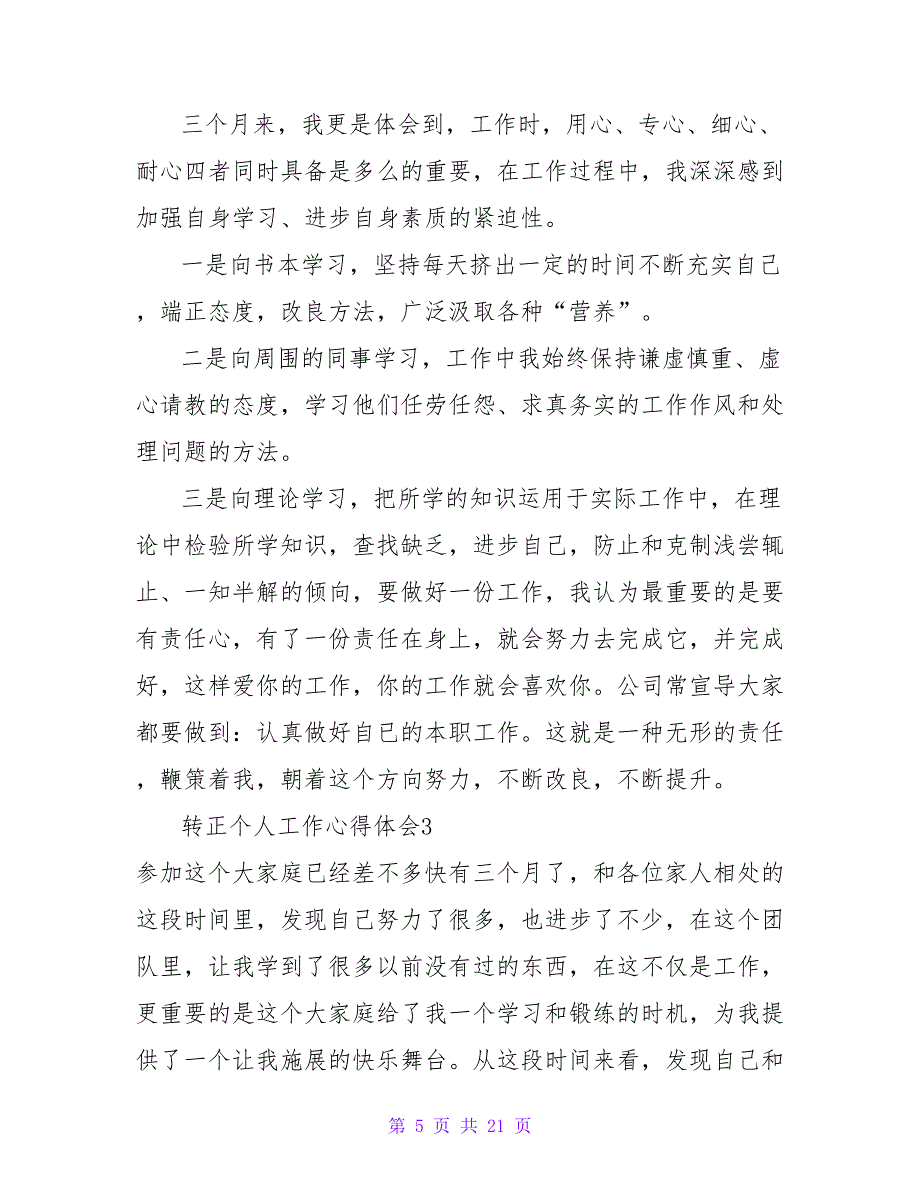 三个月来，我更是体会到，工作时，用心、专心、细心、
耐心四者同时具备是多么的重要，在工作过程中，我深深感到
加强自身学习、进步自身素质的紧迫性。
一是向书本学习，坚持每天挤出一定的时间不断充实自己
，端正态度，改良方法，广泛汲取各种“营养”。
二是向周围的同事学习，工作中我始终保持谦虚慎重、虚
心请教的态度，学习他们任劳任怨、求真务实的工作作风和处
理问题的方法。
三是向理论学习，把所学的知识运用于实际工作中，在理
论中检验所学知识，查找缺乏，进步自己，防止和克制浅尝辄
止、一知半解的倾向，要做好一份工作，我认为最重要的是要
有责任心，有了一份责任在身上，就会努力去完成它，并完成
好，这样爱你的工作，你的工作就会喜欢你。公司常宣导大家
都要做到：认真做好自已的本职工作。这就是一种无形的责任
，鞭策着我，朝着这个方向努力，不断改良，不断提升。
转正个人工作心得体会3
参加这个大家庭已经差不多快有三个月了，和各位家人相处的
这段时间里，发现自己努力了很多，也进步了不少，在这个团
队里，让我学到了很多以前没有过的东西，在这不仅是工作，
更重要的是这个大家庭给了我一个学习和锻练的时机，为我提
供了一个让我施展的快乐舞台。从这段时间来看，发现自己和
第 5 页 共 21 页